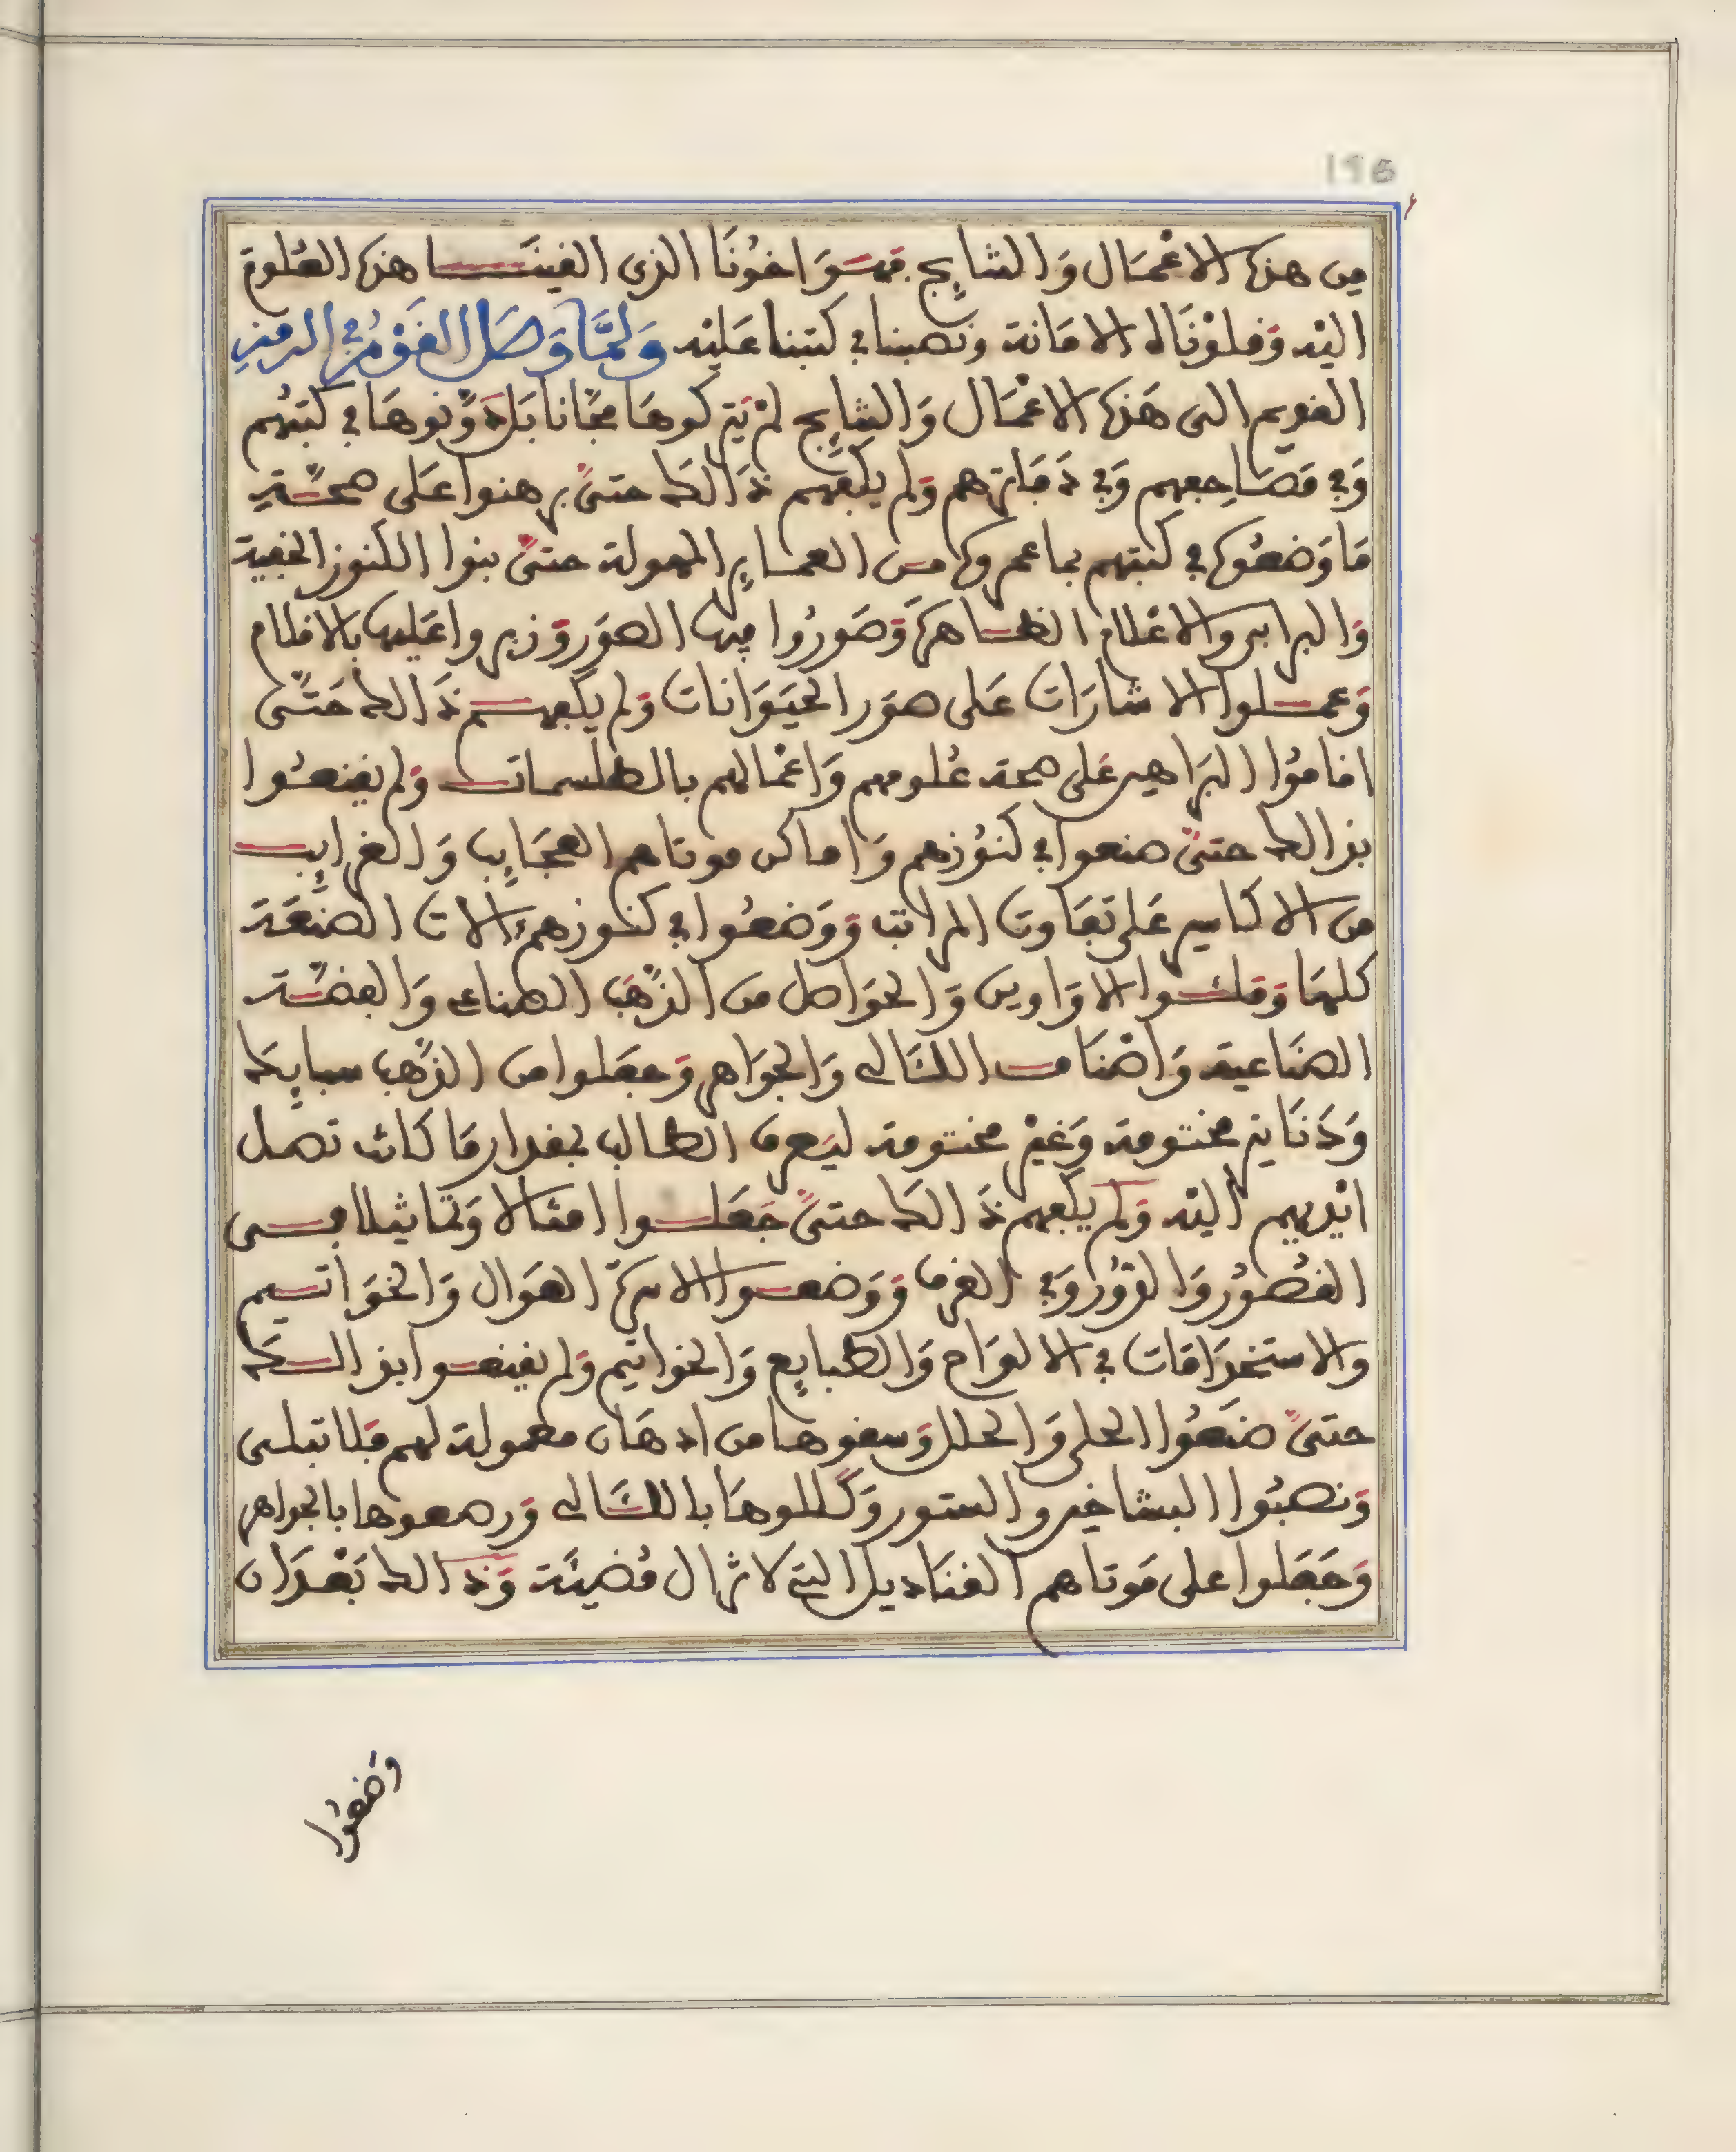 195
من هذه الاعْمَال وَالنتايج فهوَ اخُونَا الذى الفينَا هذه العُلوم
اليْه وَقلدْنَاه الامَانة ونصبنا في كتبنا عَليْه وَلمَّا وَصَل القَوْمُ في الزمنِ
القديم الى هَذه الاعْمَال وَالنتايج لمْ يَتركوهَا مجَّانا بَل دَوَّنوهَا في كتبَهُم
وَفي مَصَاحِفهم وَفي دَفَاترهم وَلم يكفهم ذَالكَ حتىَّ برهنوا عَلى صحّته
مَا وَضعُوه في كتبهم بما عمروه من العمايرِ المهولة حتىَّ بنوا الكنوز الخفية
وَالبرابر والاعْلام الظاهرَة وَصَورُوا فيها الصوَر وَزبروا عَليها بالاقلام
وَعملوا الاشارَات عَلى صوَر الحيَوَانات وَلم يكفهم ذَالك حَتىَّ
اقامُوا البرَاهين عَلى صحة عُلومهم وَاعْمالهم بالطلسمات وَلم يقنعُوا
بذالك حتىَّ صنعوا في كنُوزهم وَاماكن موتاهم العجَايِب وَالغرايِب
من الاكاسير عَلى تفَاوت المراتب وَوَضعُوا في كنوزهم الات الصنْعَة
كلهَا وَملئوا الاوَاوين وَالحوَاصل من الذهَب الصناعى وَالفضّة
الصنَاعية وَاصْنَاف اللئالى وَالجوَاهر وَجعَلوا من الذهب سبايِك
وَدَنَانير مختومة وَغيْر مختومة ليَعرف الطالب بمقدار مَا كانت تصل
ايْديهم اليْه وَلم يكفهم ذَالكَ حتىَّ جَعَلوا امثالا وَتماثيلا فى
القصُور وَالدُّور وَفي الغرف وَوَضعوا الاسرَّة العوَال وَالخوَاتيم
والاستخدَامَات في الالوَاح وَالطبايِع وَالخواتيم وَلم يقنعوا بذالك
حتىَّ صَنعُوا الحلى وَالحلل وَسقوها من ادهَان معمولة لهم فلا تبلى
وَنصبُوا البشاخين والستور وَكللوهَا باللئالى وَرصعوها بالجواهر
وَجَعَلوا على مَوتاهم القنَاديل التي لا تزال مُضيئَة وَذالك بَعْدَ ان
وَضعُوا